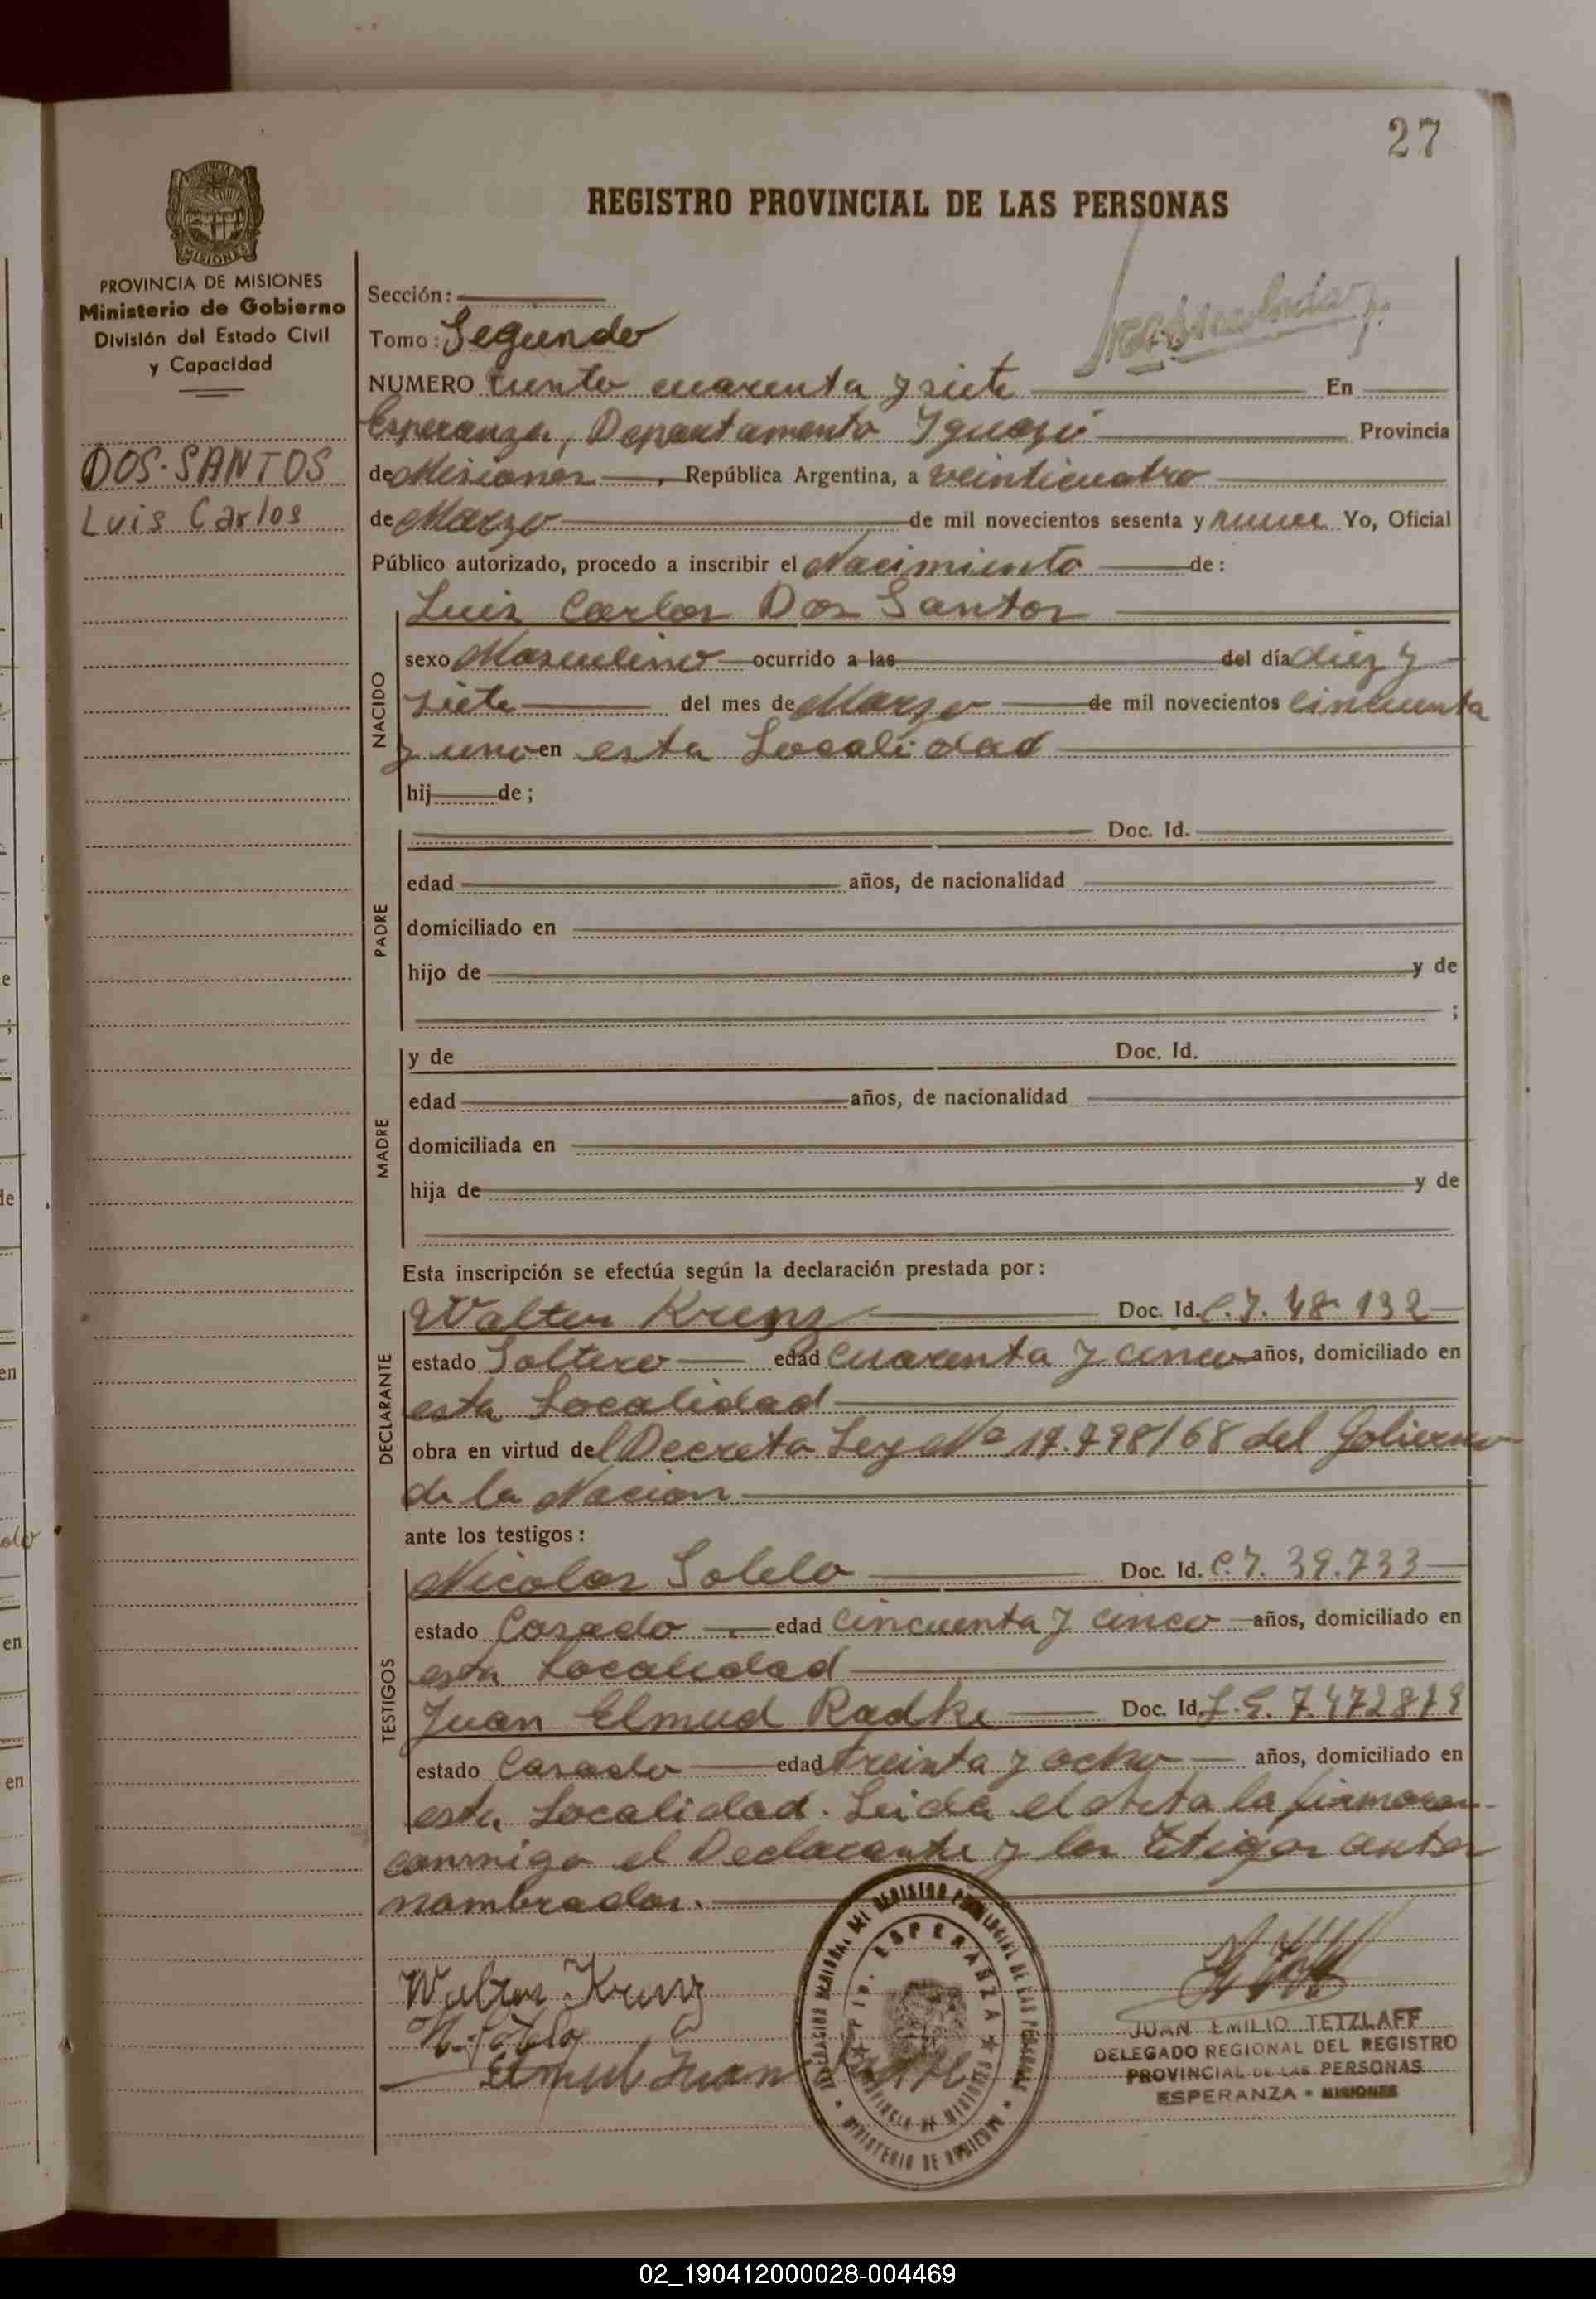 27
REGISTRO PROVINCIAL DE LAS PERSONAS
PROVINCIA DE MISIONES
Ministerio de Gobierno
División del Estado Civil
y Capacidad
DOS-SANTOS
Luis Carlos
Sección:
Tomo: Segundo
NUMERO ciento cuarenta y siete En
Esperanza, Departamento Iguazú Provincia
de Misiones, República Argentina, a veinticuatro
de Marzo de mil novecientos sesenta y nueve Yo, Oficial
Público autorizado, procedo a inscribir el Nacimiento de:
NACIDO
Luis Carlos Dos Santos
sexo Masculino ocurrido a las del día diez y
siete del mes de Marzo de mil novecientos cincuenta
y uno en esta Localidad
hij de;
PADRE
Doc. Id.
edad años, de nacionalidad
domiciliado en
hijo de y de
;
MADRE
y de Doc. Id.
edad años, de nacionalidad
domiciliada en
hija de y de
Esta inscripción se efectúa según la declaración prestada por:
DECLARANTE
Walter Krenz Doc. Id. C.I. 48.132
estado Soltero edad cuarenta y cinco años, domiciliado en
esta Localidad
obra en virtud del Decreto Ley Nº del Gobierno
de la Nacion
ante los testigos:
TESTIGOS
Nicolas Sotelo Doc. Id. C.I. 39.733
estado Casado edad cincuenta y cinco años, domiciliado en
esta Localidad
Juan Elmud Radke Doc. Id.
estado Casado edad treinta y ocho años, domiciliado en
esta Localidad. Leida el Acta la firmaron
conmigo el Declarante y los testigos antes
nombrados.
Walter Krenz
Elmud Juan Radke
ESPERANZA
PROVINCIA DE MISIONES
MINISTERIO DE GOBIERNO
JUAN EMILIO TETZLAFF
DELEGADO REGIONAL DEL REGISTRO
PROVINCIAL DE LAS PERSONAS
ESPERANZA - MISIONES
02_190412000028-004469